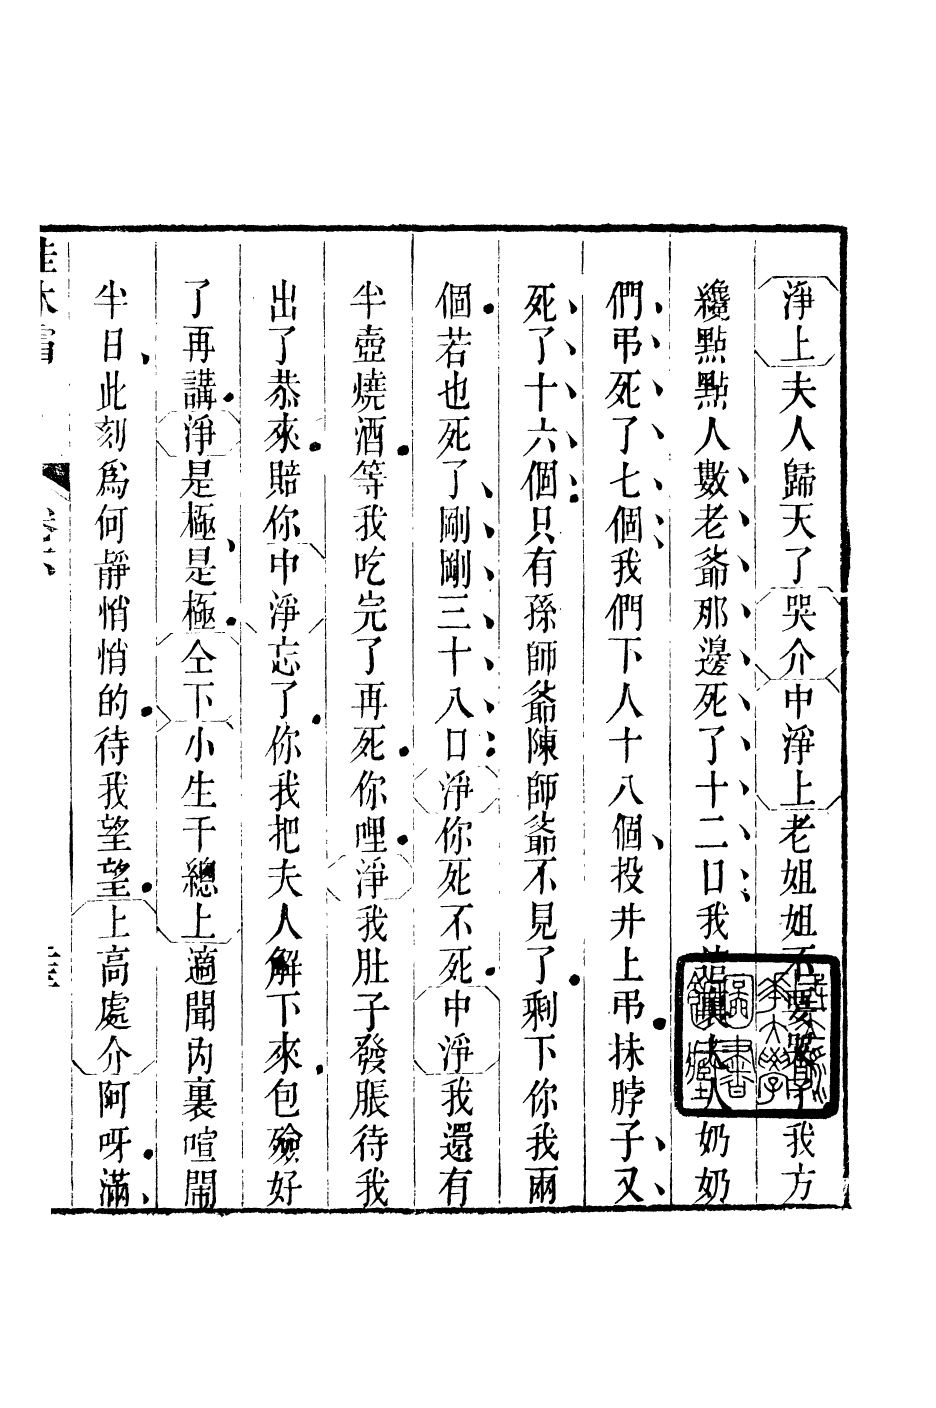 淨上夫人歸天了哭介中淨上老姐姐不要哭了我方
纔點點人數老爺那邊死了十二口我夫人奶奶
們弔死了七個我們下人十八個投井上弔抹脖子又
死了十六個只有孫師爺陳師爺不見了剩下你我兩
個若也死了剛剛三十八口淨你死不死中淨我還有
半壺燒酒等我吃完了再死你哩淨我肚子發脹待我
出了恭來賠你中淨忘了你我把夫人解下來包殮好
了再講淨是極是極仝下小生千總上適聞內裏喧鬧
半日此刻爲何靜悄悄的待我望望上高處介阿呀滿